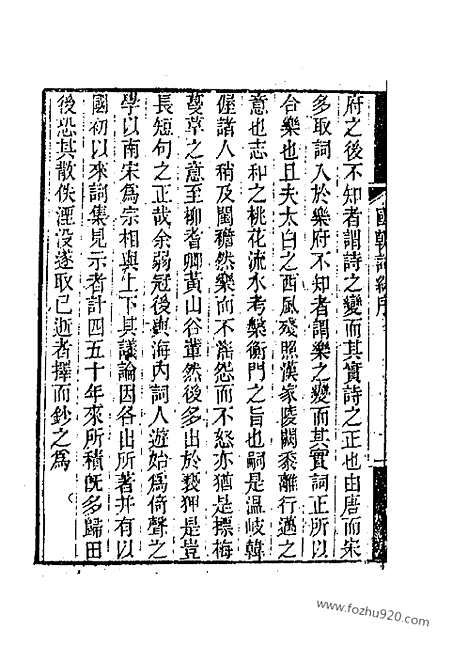 府之後不知者謂詩之變而其實詩之正也由唐而宋
多取詞入於樂府不知者謂樂之變而其實詞正所以
合樂也且夫太白之西風殘照漢家陵闕黍離行邁之
意也志和之桃花流水考槃衡門之旨也嗣是温岐韓
偓諸人稍及閨襜然樂而不淫怨而不怒亦猶是摽梅
蔓草之意至柳耆卿黃山谷輩然後多出於褻狎是豈
長短句之正哉余弱冠後與海内詞人遊始為倚聲之
學以南宋為宗相與上下其議論因各出所著并有以
國初以來詞集見示者計四五十年來所積旣多歸田
後恐其散佚湮没遂取已逝者擇而鈔之為
國朝詞綜序
www.fozhu920.com